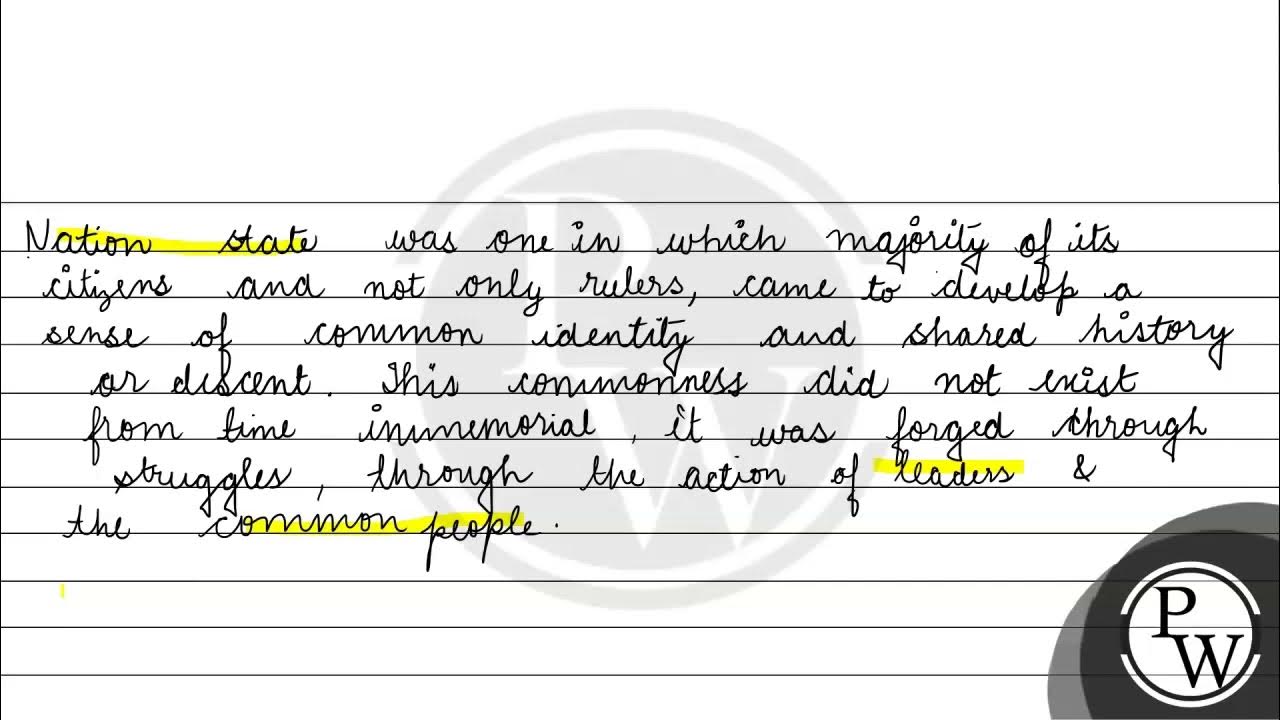 Nation state was one in which majority of its
citizens and not only rulers, came to develop a
sense of common identity and shared history
or descent. This commonness did not exist
from time immemorial, it was forged through
struggles, through the action of leaders &
the common people.
PW
PW